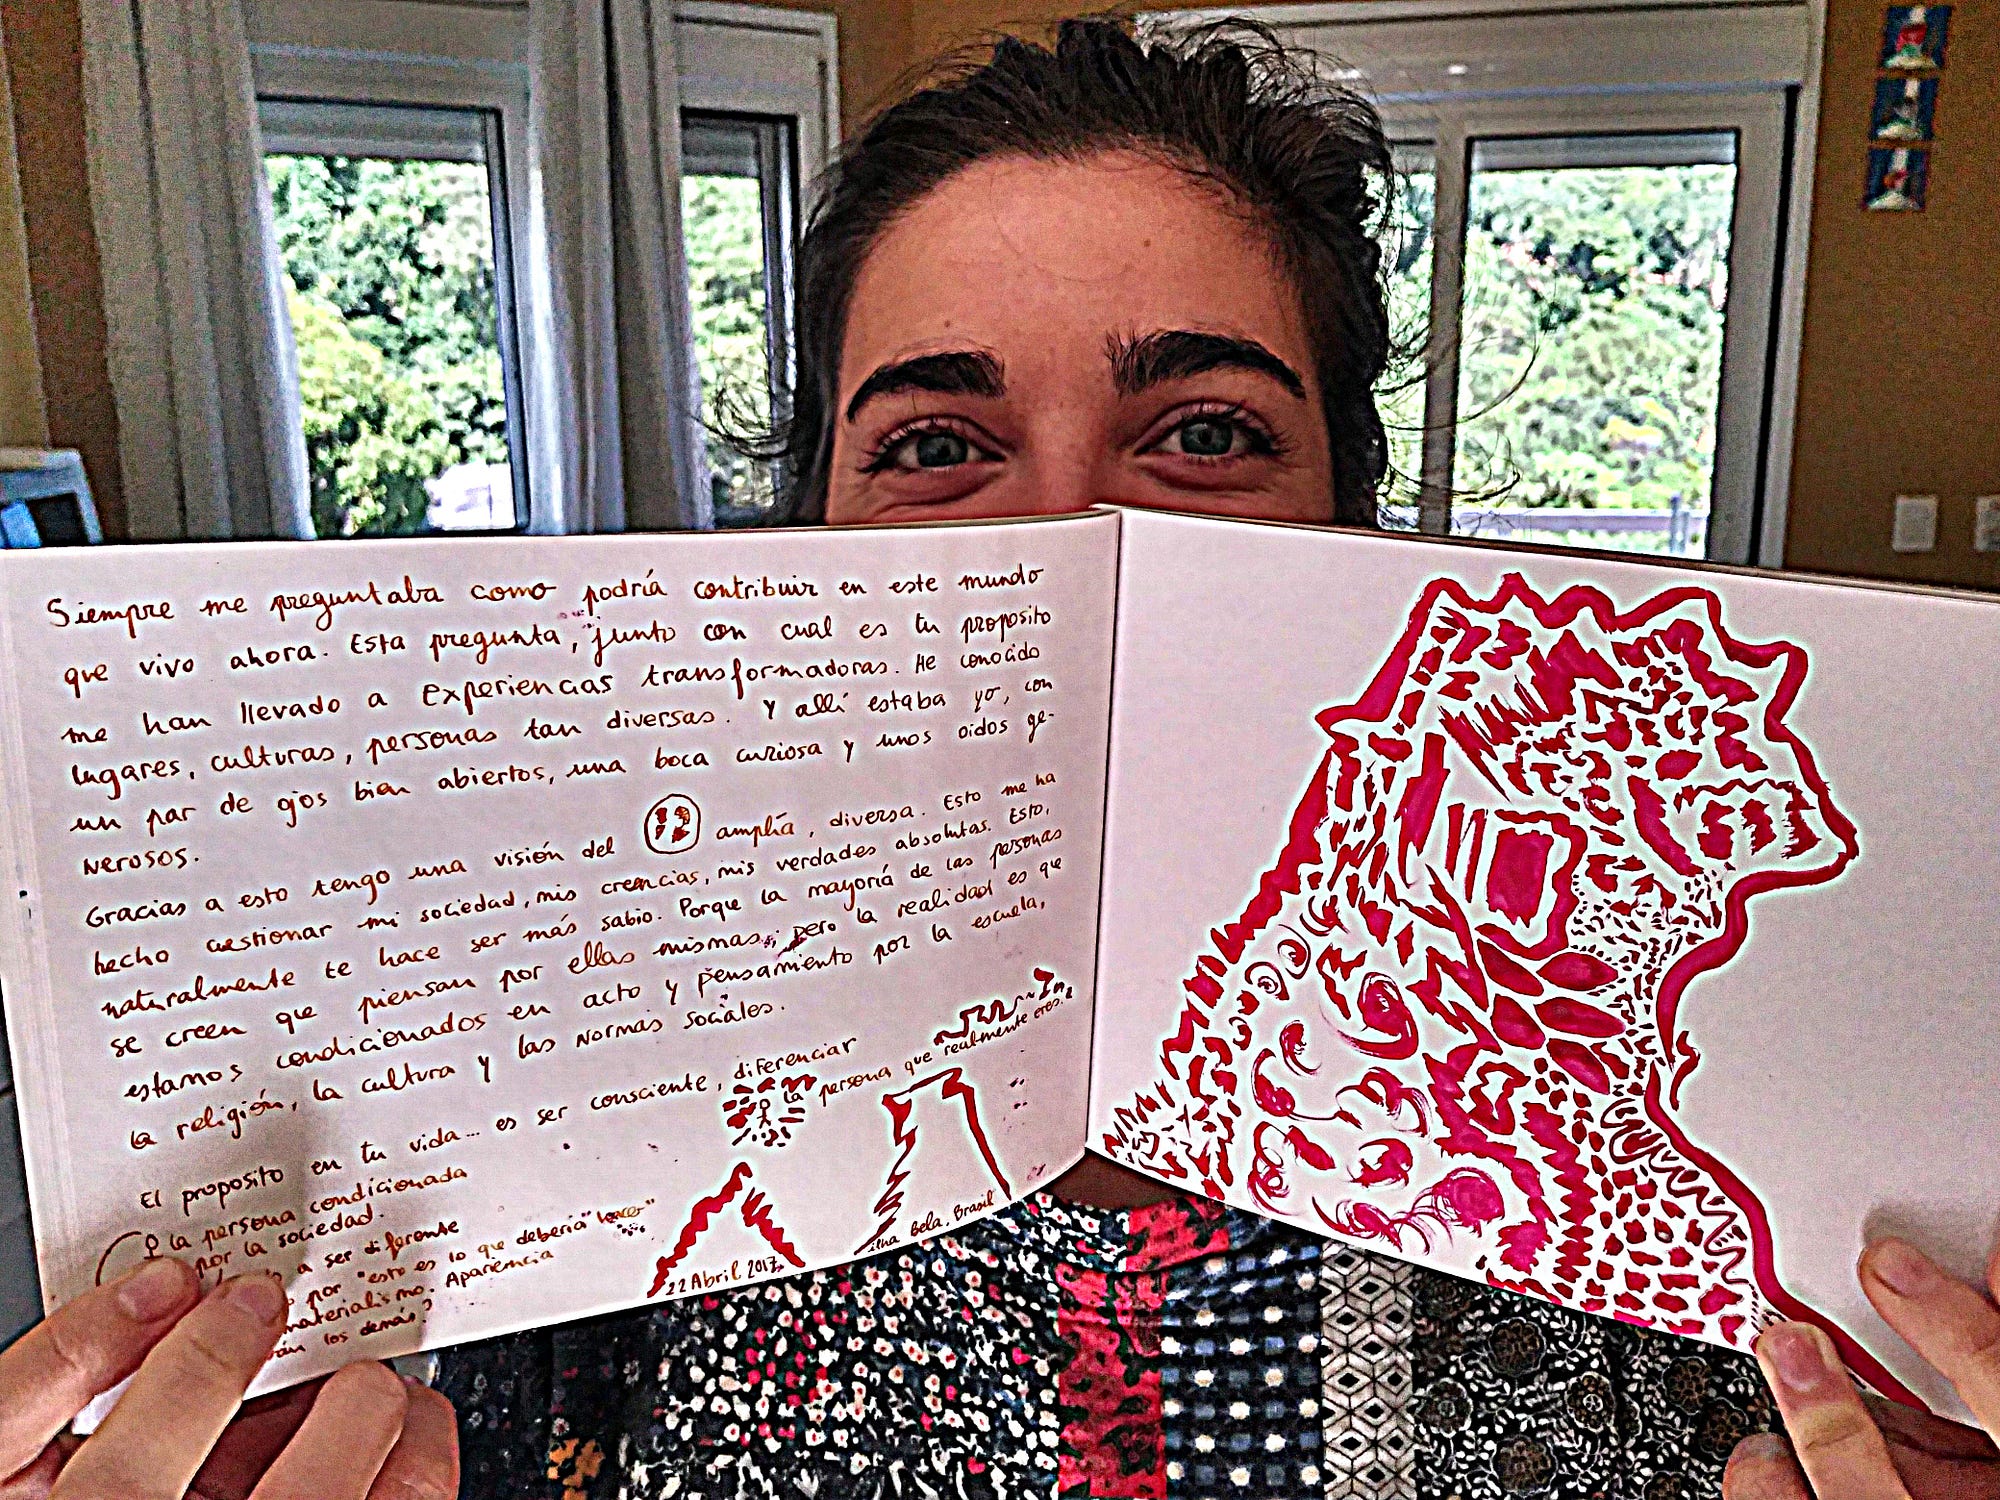 Siempre me preguntaba como podría contribuir en este mundo
que vivo ahora. Esta pregunta, junto con cual es tu proposito
me han llevado a experiencias transformadoras. He conocido
lugares, culturas, personas tan diversas. Y allí estaba yo, con
un par de ojos bien abiertos, una boca curiosa y unos oidos ge-
nerosos.
Gracias a esto tengo una visión del amplia, diversa. Esto me ha
hecho cuestionar mi sociedad, mis creencias, mis verdades absolutas. Esto,
naturalmente te hace ser más sabio. Porque la mayoría de las personas
se creen que piensan por ellas mismas, pero la realidad es que
estamos condicionados en acto y pensamiento por la escuela,
la religión, la cultura y las normas sociales.
El proposito en tu vida... es ser consciente, diferenciar
la persona que realmente eres.
O la persona condicionada
por la sociedad.
a ser diferente
por "esto es lo que deberia"
materialismo. Apariencia
los demás?
22 Abril 2017
ilha Bela, Brasil